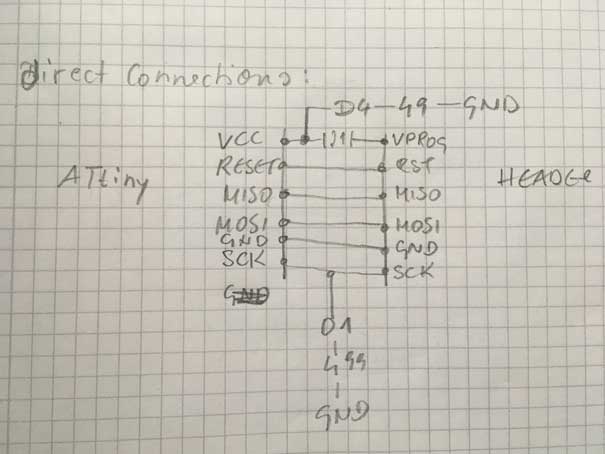 Direct Connections:
D4-49-GND
VCC VPROG
RESET RST
ATtiny MISO MISO HEADER
MOSI MOSI
GND GND
SCK SCK
GND
D1
499
GND